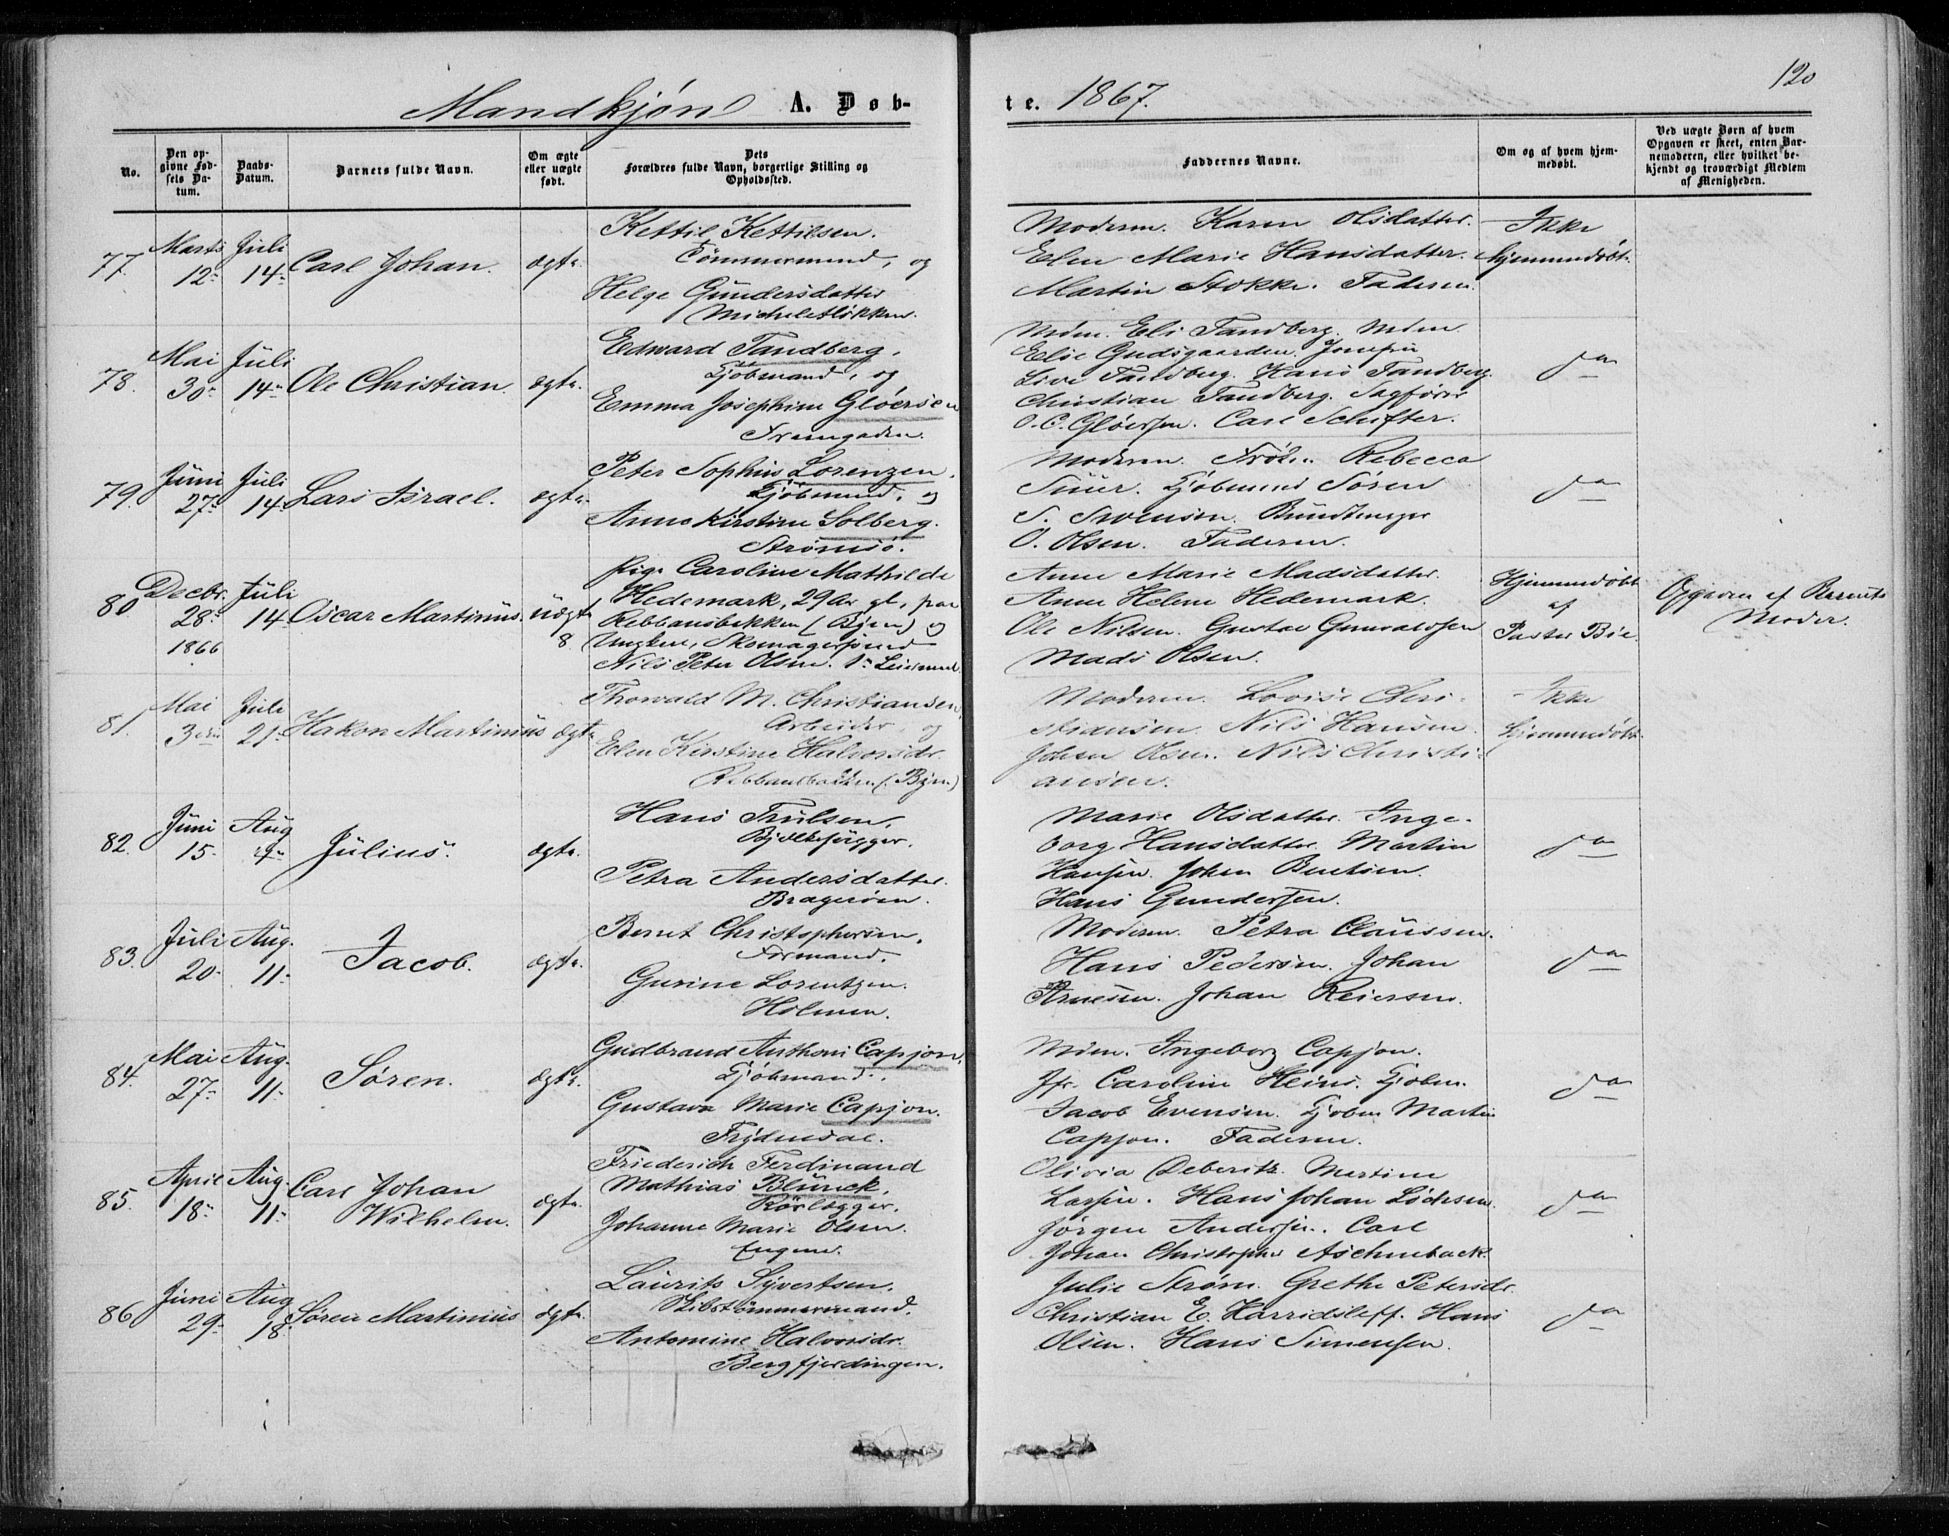 120
Mandkjøn A. Døb-
te. 1867.
No.
Den op-
givne Fød-
sels Da-
tum.
Daabs-
Datum.
Barnets fulde Navn.
Om ægte
eller uægte
født.
Dets
Forældres fulde Navn, borgerlige Stilling og
Opholdssted.
Faddernes Navne.
Om og af hvem hjem-
medøbt.
Ved uægte Børn af hvem
Opgaven er skeet, enten Bar-
nemoderen, eller hvilket be-
kjendt og troværdigt Medlem
af Menigheden.
77. Marts 12. Juli 14. Carl Johan. ægte.
Kettil Kettilsen.
Tømmermand, og
Helge Gundersdatter
Micheletløkken.
Moderen. Karen Olsdatter.
Elen Marie Hansdatter.
Martin Stokke. Faderen.
Ikke
hjemmedøbt.
78. Mai 30. Juli 14. Ole Christian. ægte.
Edward Tandberg.
Kjøbmand, og
Emma Josephine Gløersen
Tremgaden.
Mdm. Eli Tandberg. Mdm
Elise Gudsgaarden. Jomfru
Live Tandberg. Hans Tandberg.
Christian Tandberg. Sagfører
O. C. Gløersen. Carl Schifter.
do
79. Juni 27. Juli 14. Lars Israel. ægte.
Peter Sophus Lorenzen.
Kjøbmand, og
Anne Kirstine Solberg.
Strømsø.
Moderen. Frøken Rebecca
Kjøbmand Søren
S. Svensen. Bundtmager
O. Olsen. Faderen.
do
80. Decbr. 28. 1866 Juli 14. Oscar Martinius. uægte
8
Pige Caroline Mathilde
Hedemark, 29 Aar gl., paa
Kebbansbakken (Byen) og
Ungkarl, Skomagersvend
Nils Peter Olsen. 1ste Leiermaal
Anne Marie Madsdatter.
Anne Helene Hedemark.
Ole Nilsen. Gustav Gunvaldsen
Mads Olsen.
Hjemmedøbt
af
Pastor Bøe
Opgaven af Barnets
Moder.
81. Mai 3die Juli 21. Hakon Martinius ægte
Thorvald M. Christiansen,
Arbeider, og
Elen Kirstine Halvorsdr.
Kebbansbakken (Byen)
Moderen. Lovise Chri-
stiansen. Nils Hansen
Johan Olsen. Nils Christi-
ansen.
Ikke
hjemmedøbt
82. Juni 15. Aug 4. Julius. ægte.
Hans Trulsen.
Bjelkehugger.
Petra Andersdatter.
Bragerøen.
Marie Olsdatter. Inge-
borg Hansdatter. Martin
Hansen. Johan Bentsen.
Hans Gundersen.
do
83. Juli 20. Aug. 11. Jacob. ægte.
Bernt Christophersen.
Formand.
Gurine Lorentzen.
Holmen.
Moderen. Petra Claussen.
Hans Pedersen. Johan
Arnesen. Johan Reiersen.
do
84. Mai 27. Aug. 11. Søren. ægte.
Gudbrand Anthoni Capjon.
Kjøbmand.
Gustava Marie Capjon.
Frydendal.
Mdm. Ingeborg Capjon.
Jfr. Caroline Heins. Kjøbm.
Jacob Evensen. Kjøbm Martin
Capjon. Faderen.
do
85. April 18. Aug. 11. Carl Johan
Wilhelm. ægte.
Friederich Ferdinand
Mathias Blünck,
Rørlægger.
Johanne Marie Olsen.
Engene.
Olivia Deberitz. Martine
Larsen. Hans Johan Lochsen.
Jørgen Andersen. Carl
Johan Christopher Aschenback.
do
86. Juni 29. Aug 18. Søren Martinius ægte.
Laurits Syvertsen.
Skibstømmermand.
Antomine Halvorsdr.
Bergfjerdingen.
Julie Strøm. Grethe Petersdr.
Christian E. Harridsleff. Hans
Olsen. Hans Simensen.
do